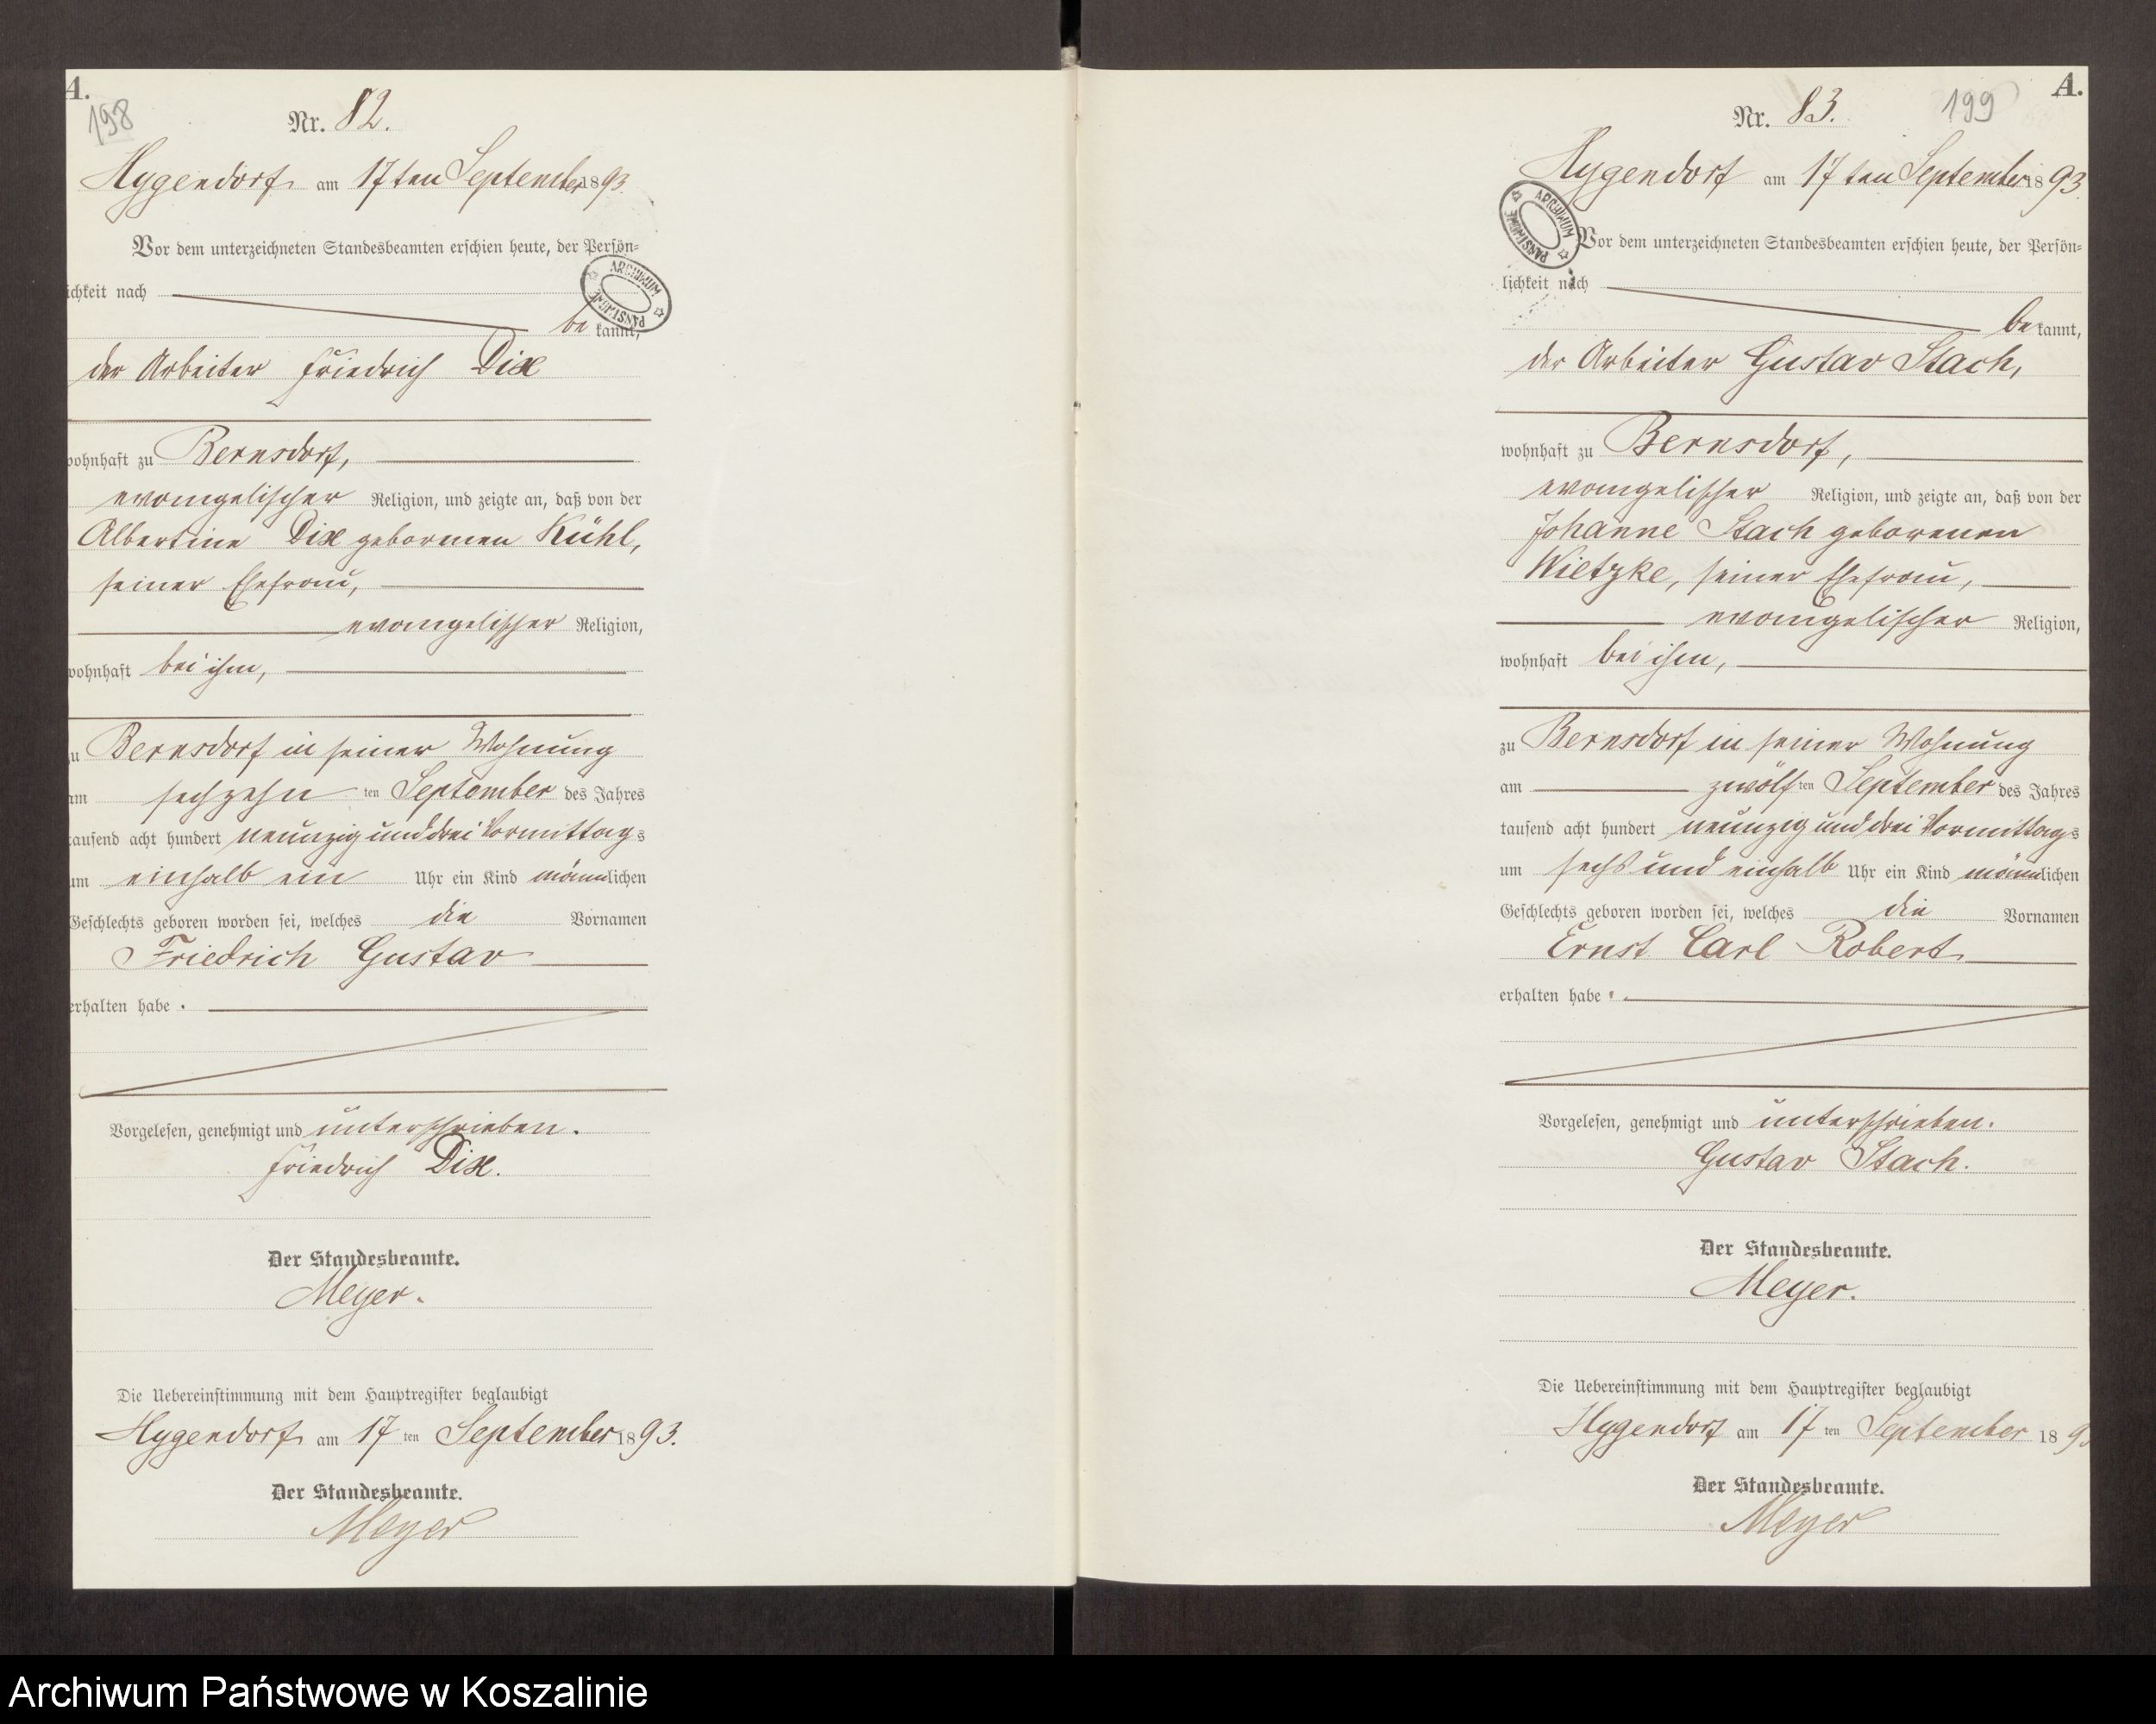 A.
198
Nr. 82.
Hygendorf am 17ten September 1893.
Vor dem unterzeichneten Standesbeamten erschien heute, der Persön-
ichkeit nach
be kannt,
der Arbeiter Friedrich Dix
wohnhaft zu Bernsdorf,
evangelischer Religion, und zeigte an, daß von der
Albertine Dix geborenen Kühl,
seiner Ehefrau,
evangelischer Religion,
wohnhaft bei ihm,
zu Bernsdorf in seiner Wohnung
am sechzehn ten September des Jahres
tausend acht hundert neunzig und drei Vormittags
um einhalb ein Uhr ein Kind männlichen
Geschlechts geboren worden sei, welches die Vornamen
Friedrich Gustav
erhalten habe.
Vorgelesen, genehmigt und unterschrieben.
Friedrich Dix.
Der Standesbeamte.
Meyer.
Die Uebereinstimmung mit dem Hauptregister beglaubigt
Hygendorf am 17 ten September 1893.
Der Standesbeamte.
Meyer
ARCHIWUM PAŃSTWOWE
A.
199
Nr. 83.
Hygendorf am 17ten September 1893.
ARCHIWUM PAŃSTWOWE
Vor dem unterzeichneten Standesbeamten erschien heute, der Persön-
lichkeit nach
be kannt,
der Arbeiter Gustav Stach,
wohnhaft zu Bernsdorf,
evangelischer Religion, und zeigte an, daß von der
Johanne Stach geborenen
Wietzke, seiner Ehefrau,
evangelischer Religion,
wohnhaft bei ihm,
zu Bernsdorf in seiner Wohnung
am zwölf ten September des Jahres
tausend acht hundert neunzig und drei Vormittags
um sechs und einhalb Uhr ein Kind männlichen
Geschlechts geboren worden sei, welches die Vornamen
Ernst Carl Robert
erhalten habe.
Vorgelesen, genehmigt und unterschrieben.
Gustav Stach.
Der Standesbeamte.
Meyer.
Die Uebereinstimmung mit dem Hauptregister beglaubigt
Hygendorf am 17 ten September 1893
Der Standesbeamte.
Meyer
Archiwum Państwowe w Koszalinie